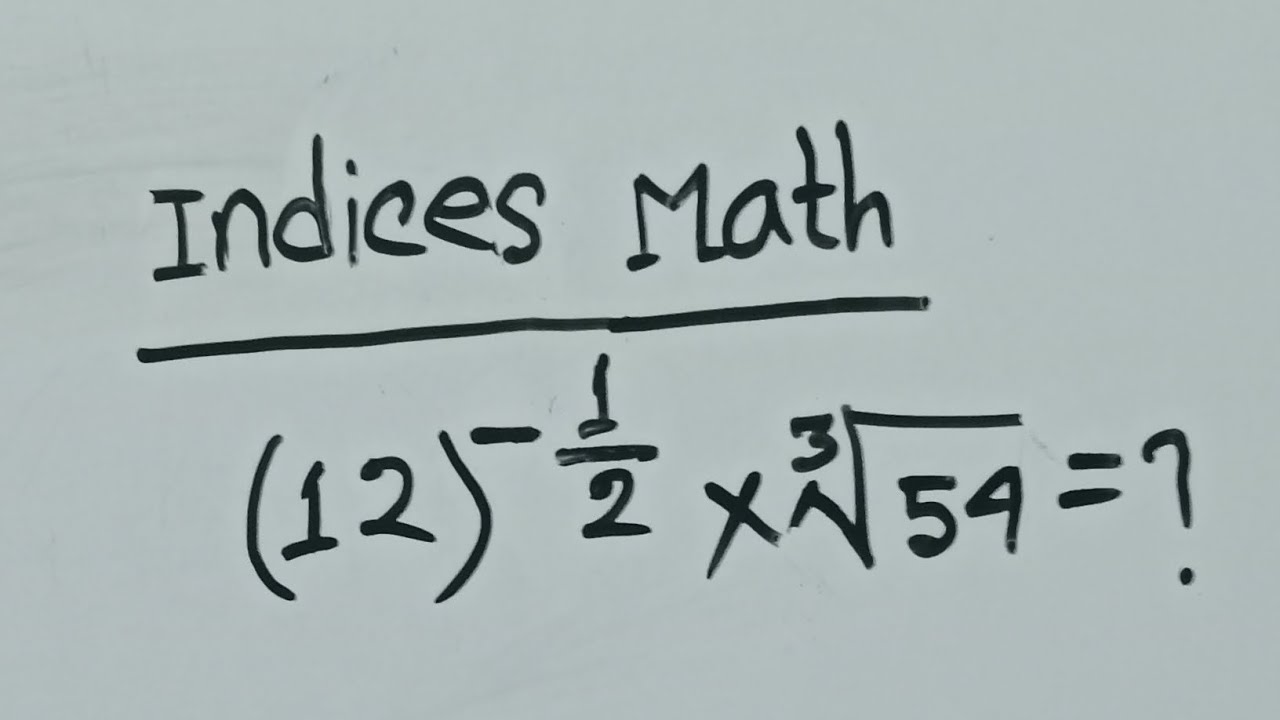 Indices Math
(12)^{-\frac{1}{2}} × \sqrt[3]{54} = ?